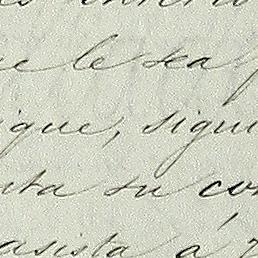 le sea
ique, sigui
nta su con
asista á